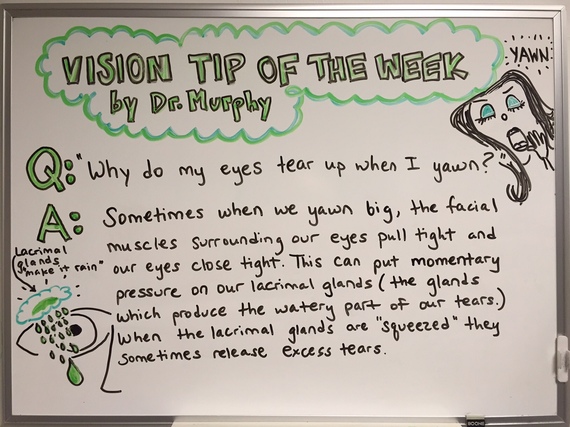 VISION TIP OF THE WEEK
by Dr. Murphy
YAWN
Q: "Why do my eyes tear up when I yawn?"
A: Sometimes when we yawn big, the facial
muscles surrounding our eyes pull tight and
our eyes close tight. This can put momentary
pressure on our lacrimal glands (the glands
which produce the watery part of our tears.)
When the lacrimal glands are "squeezed" they
sometimes release excess tears.
Lacrimal
glands
"make it rain"